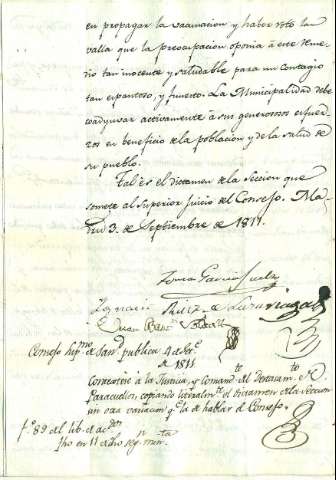 en propagar la vacunacion y haber roto la
valla que la preocupacion oponia à este reme-
dio tan inocente y saludable para un contagio
tan espantoso, y funesto. La Municipalidad debe
coadyuvar activamente à sus generosos esfuer-
zos en beneficio de la poblacion y de la salud de
su pueblo.
Tal es el dictamen de la Seccion que
somete al Superior juicio del Consejo. Ma-
drid 3. de Septiembre de 1811.
Ignacio Ruiz de Luzuriaga
Juan Bautª
Consejo Supmo de sand publica 4 de Sere
de 1811
Contextese à la Justicia, y Comandte del Destacamto de
Paracuellos, copiando literalmte el dictamen de la Seccion
sin otra variacion qe la de hablar el Consejo.
fº 89 del lib. de acdos
fho en 11 dho seg. minta